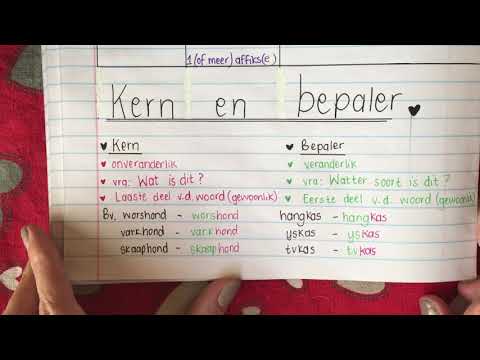 1 (of meer) affiks(e)
Kern en bepaler
Kern
onveranderlik
vra: Wat is dit?
Laaste deel v.d. woord (gewoonlik)
Bv. worshond - worshond
varkhond - varkhond
skaaphond - skaaphond
Bepaler
veranderlik
vra: Watter soort is dit?
Eerste deel v.d. woord (gewoonlik)
hangkas - hangkas
yskas - yskas
tvkas - tvkas